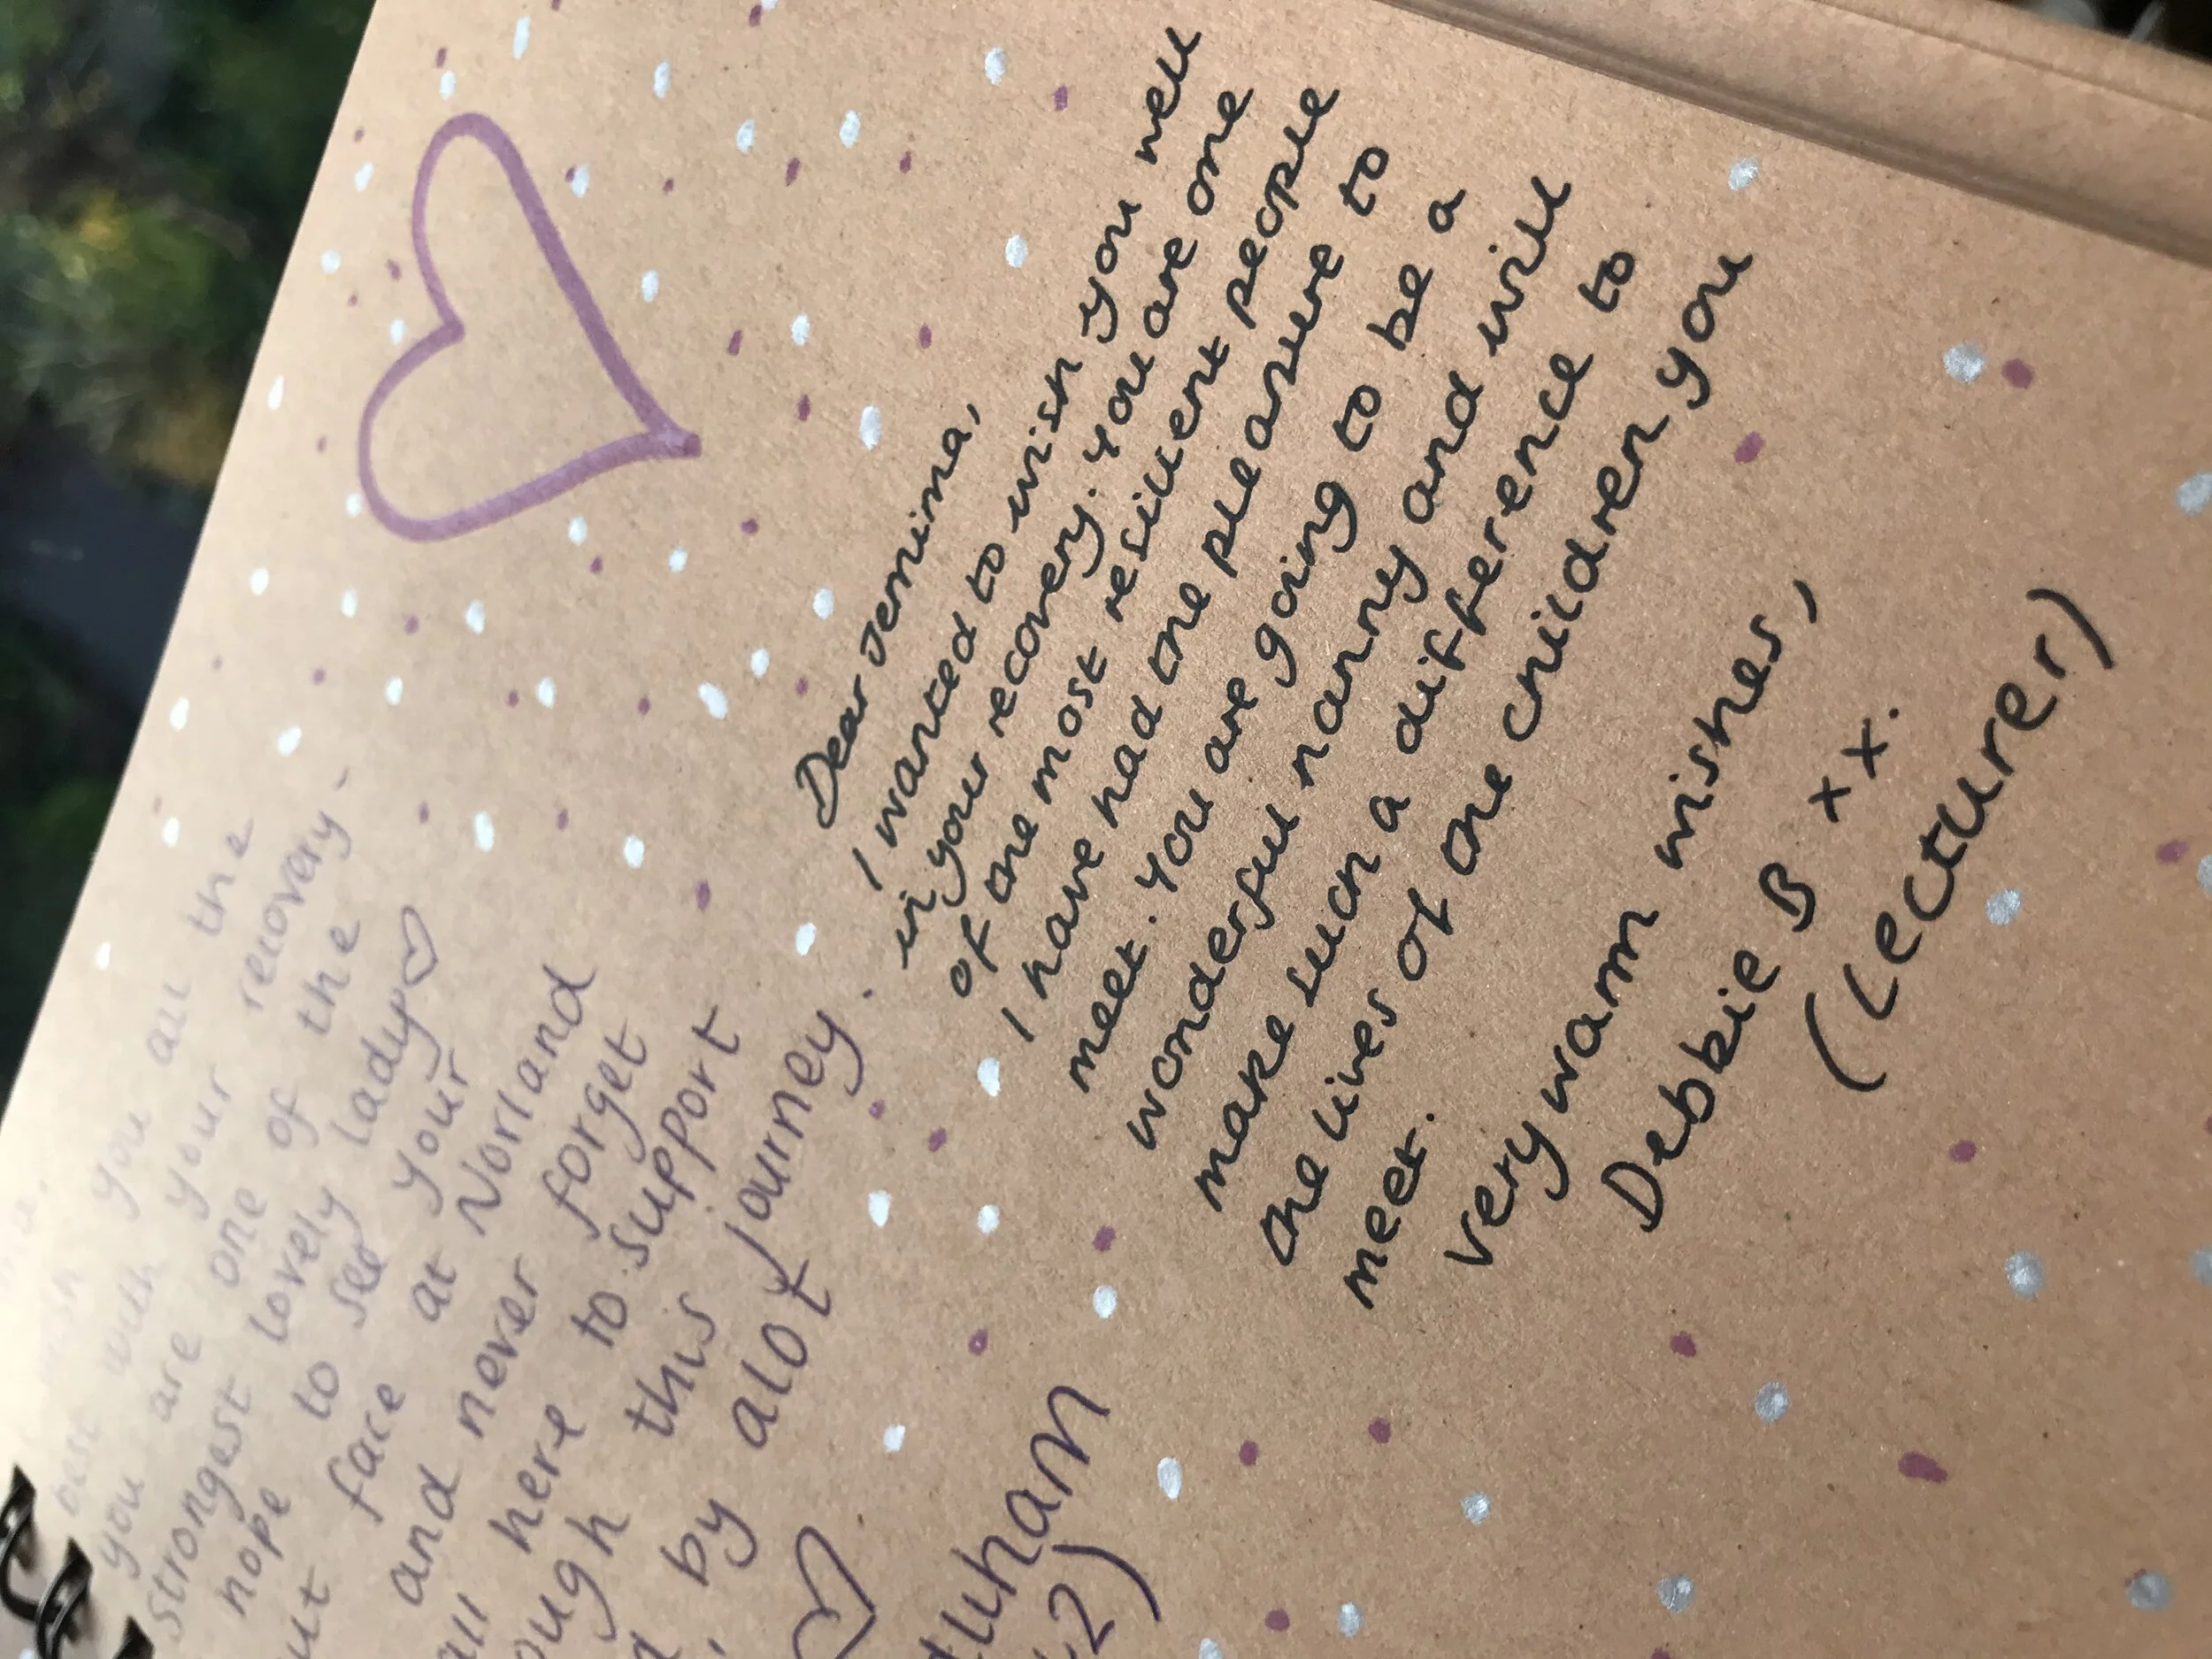 you all the
best with your recovery -
you are one of the
strongest lovely lady♡
hope to see your
face at Norland
and never forget
all here to support
this journey.
by alot
2)
Dear Jemima,
I wanted to wish you well
in your recovery. You are one
of the most resilient people
I have had the pleasure to
meet. You are going to be a
wonderful nanny and will
make such a difference to
the lives of the children you
meet.
Very warm wishes,
Debbie B xx.
(Lecturer)